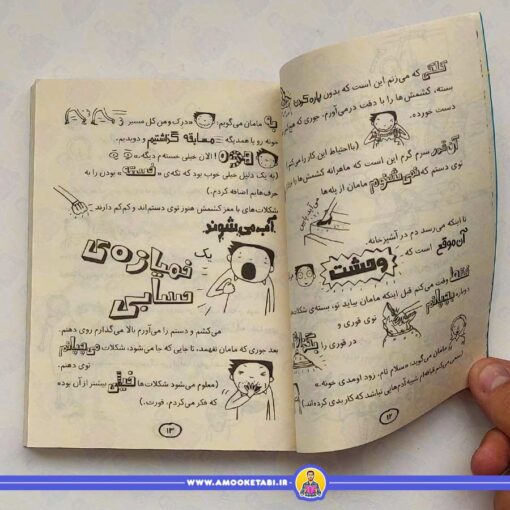 کلکی که می‌زنم این است که بدون پاره کردن
بسته، کشمش‌ها را با دقت درمی‌آورم. جوری که
دست خورده.
(بااحتیاط این کار را می‌کنم
آن‌قدر سرم گرم این است که ماهرانه کشمش‌ها
توی دستم که نمی‌شنوم مامان از پله‌ها
می‌آید پایین
تا اینکه می‌رسد دم در آشپزخانه.
آن موقع است که
وحشت
فقط وقت می‌کنم قبل اینکه مامان بیاید تو، بسته‌ی شکلات
دوباره بچپانم توی قوری و
در قوری را بگذارم
مامان می‌گوید: «سلام تام. زود اومدی خونه.»
(سعی می‌کنم قیافه‌ام شبیه آدم‌هایی نباشد که کار بدی کرده‌اند.)
۱۲
به مامان می‌گویم: «درک و من کل مسیر
خونه رو با همدیگه مسابقه گذاشتیم و دویدیم.
الان خیلی خسته‌م دیگه.»
(به یک دلیل خیلی خوب بود که تکه‌ی خسته بودن را به
حرف‌هایم اضافه کردم.)
شکلات‌های با مغز کشمش هنوز توی دستم‌اند و کم‌کم دارند
آب می‌شوند.
یک
خمیازه‌ی
حسابی
می‌کشم و دستم را می‌آورم بالا می‌گذارم روی دهنم.
بعد جوری که مامان نفهمد، تا جایی که جا می‌شود، شکلات می‌چپانم
توی دهنم.
(معلوم می‌شود شکلات‌ها خیلی بیشتر از آن بوده
که فکر می‌کردم. قورت.)
۱۳
WWW.AMOOKETABI.IR